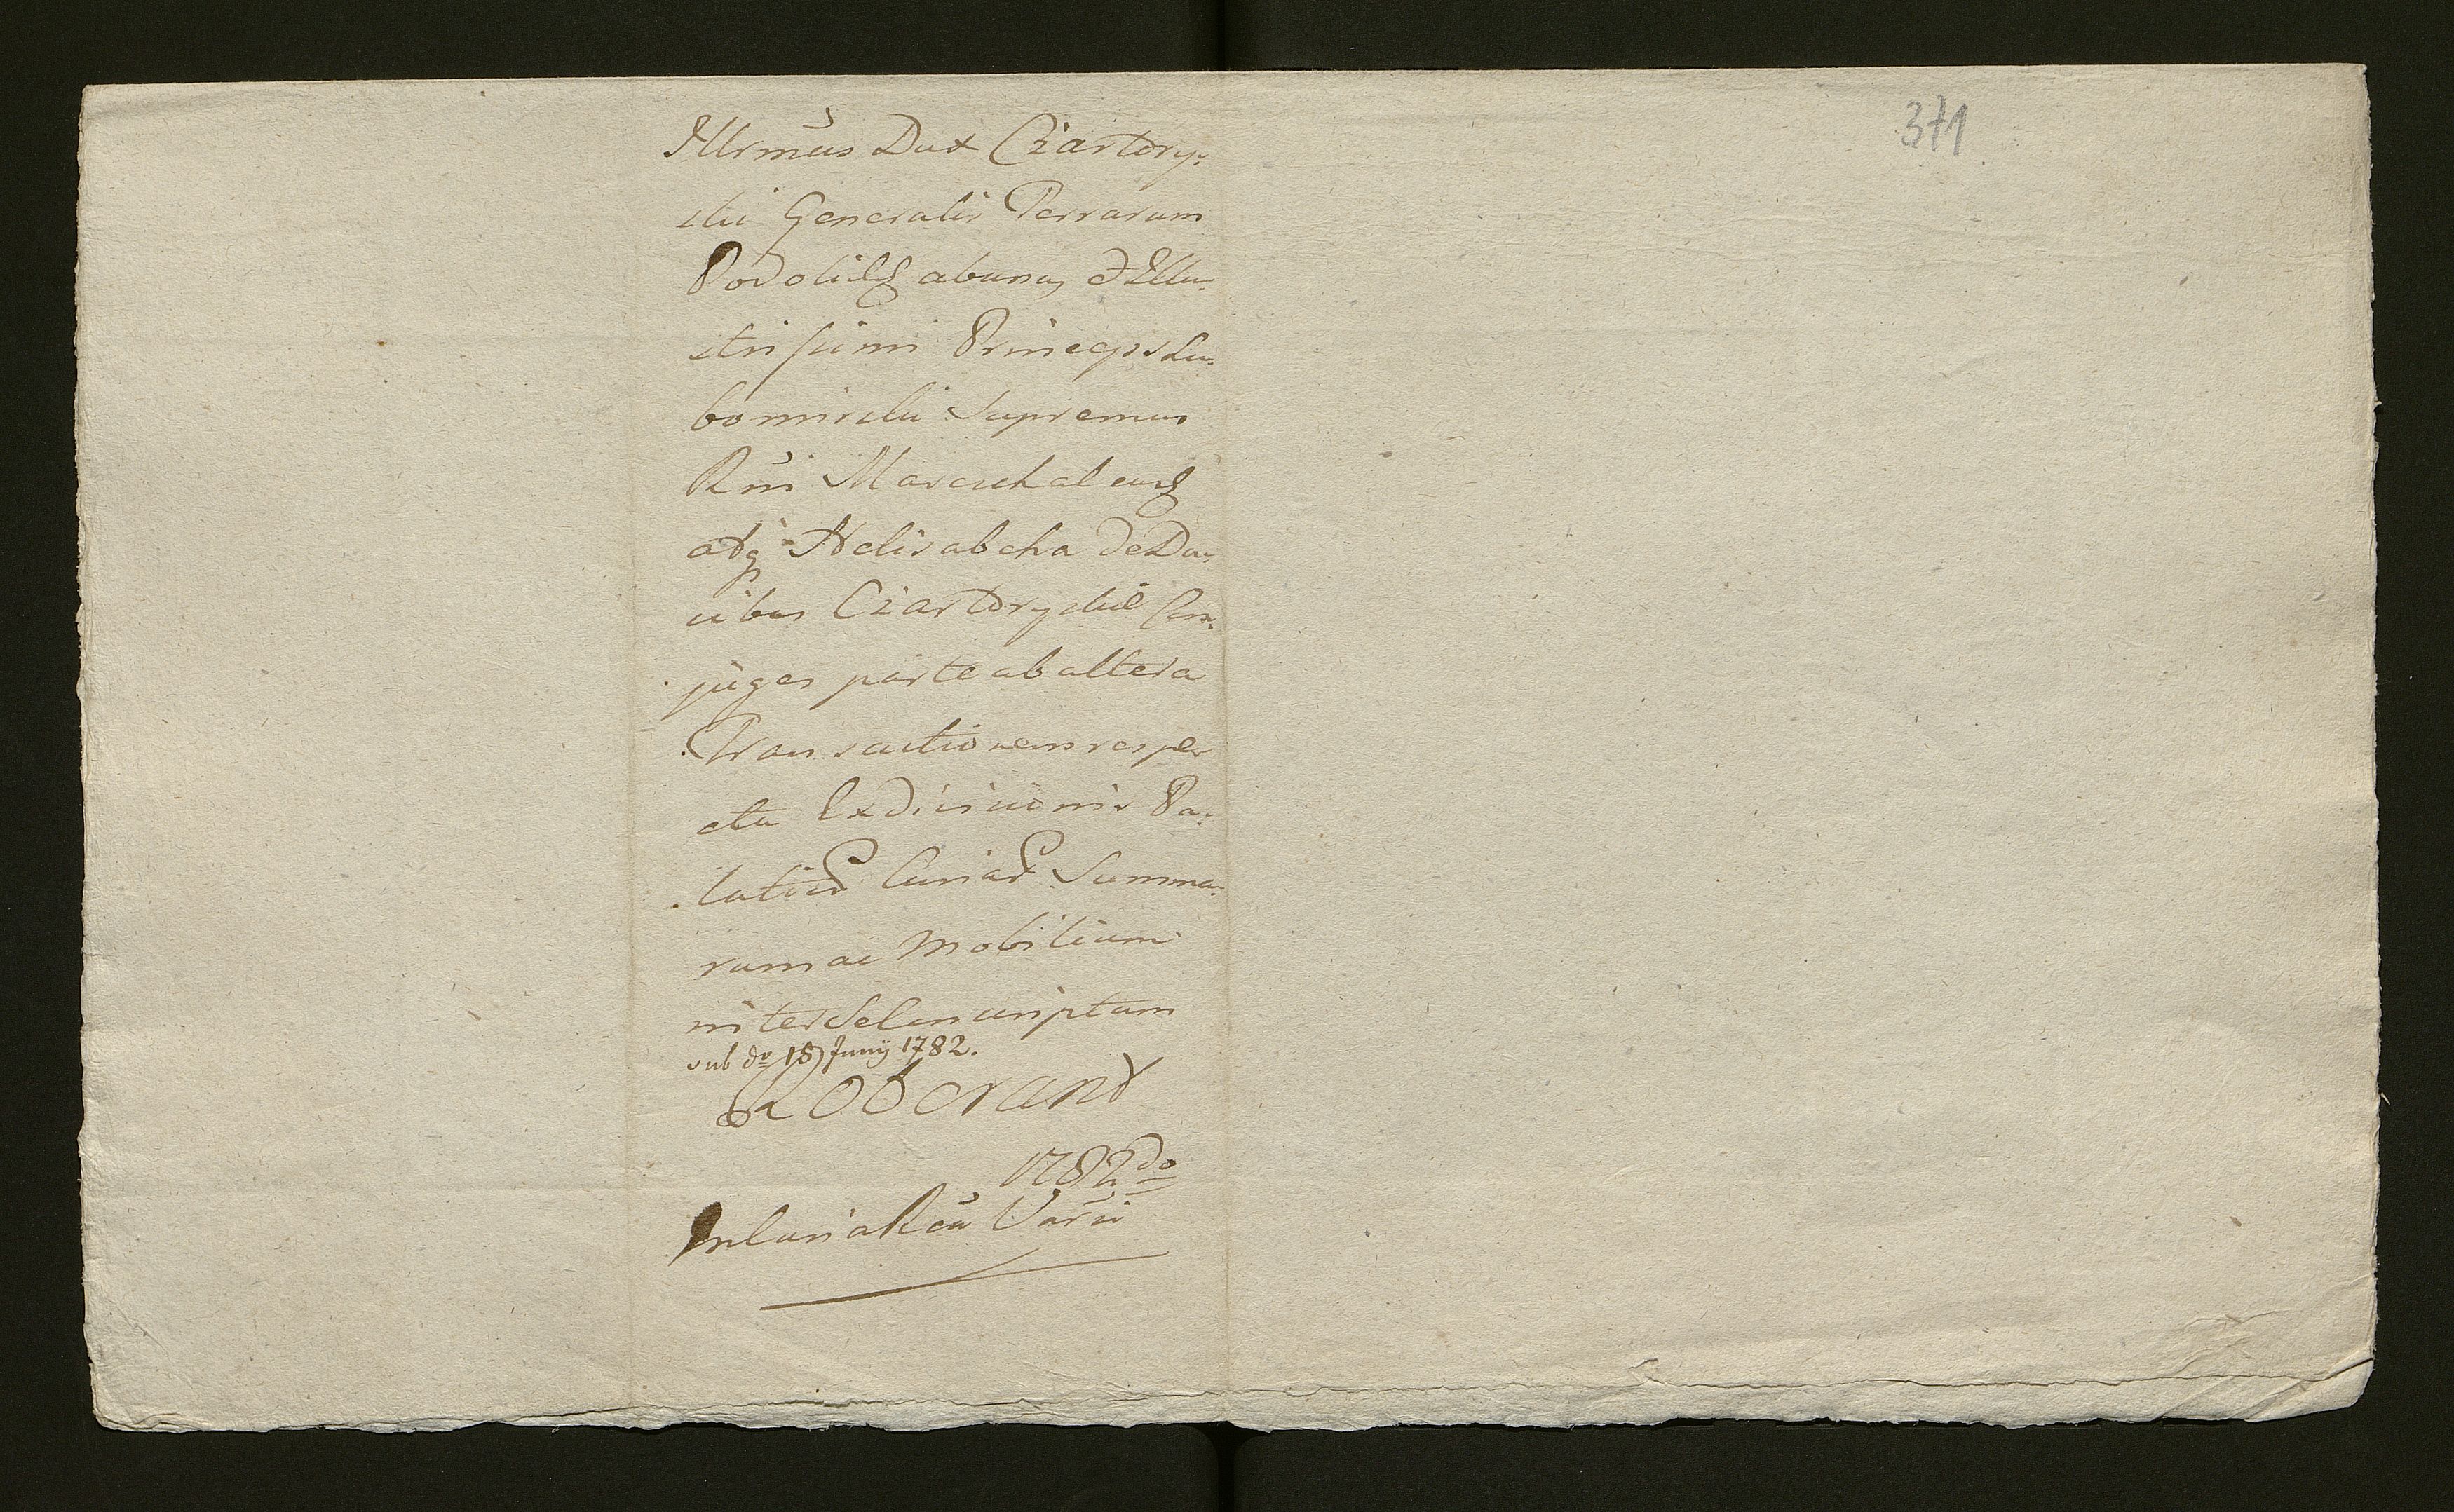 371
Illrmus Dux Czartory-
ski Generalis Terrarum
Podoliæ ab una, & Illu-
strissimi Princeps Lu-
bomirski Supremus
Rni Mareschalcus
atq Helisabetha de Du-
cibus Czartoryskie Con-
juges parte ab altera
Transactionem respe
ctu Exdivisionis Pa-
latior Curiar Summa-
rum ac Mobilium
inter se conscriptam
sub do 15 Junij 1782.
Roborant
1782do
In Curia Rea Varsi